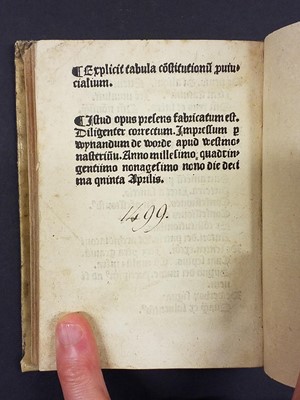 ¶Explicit tabula cōstitutionū ꝓuin-
cialium.
¶Istud opus presens fabricatum est.
Diligenter correctum. Impressum ꝑ
wynandum de worde apud westmo-
nasteriū. Anno millesimo, quadrin
gentiimo nonagesimo nono die deci
ma quinta Aprilis.
1499.